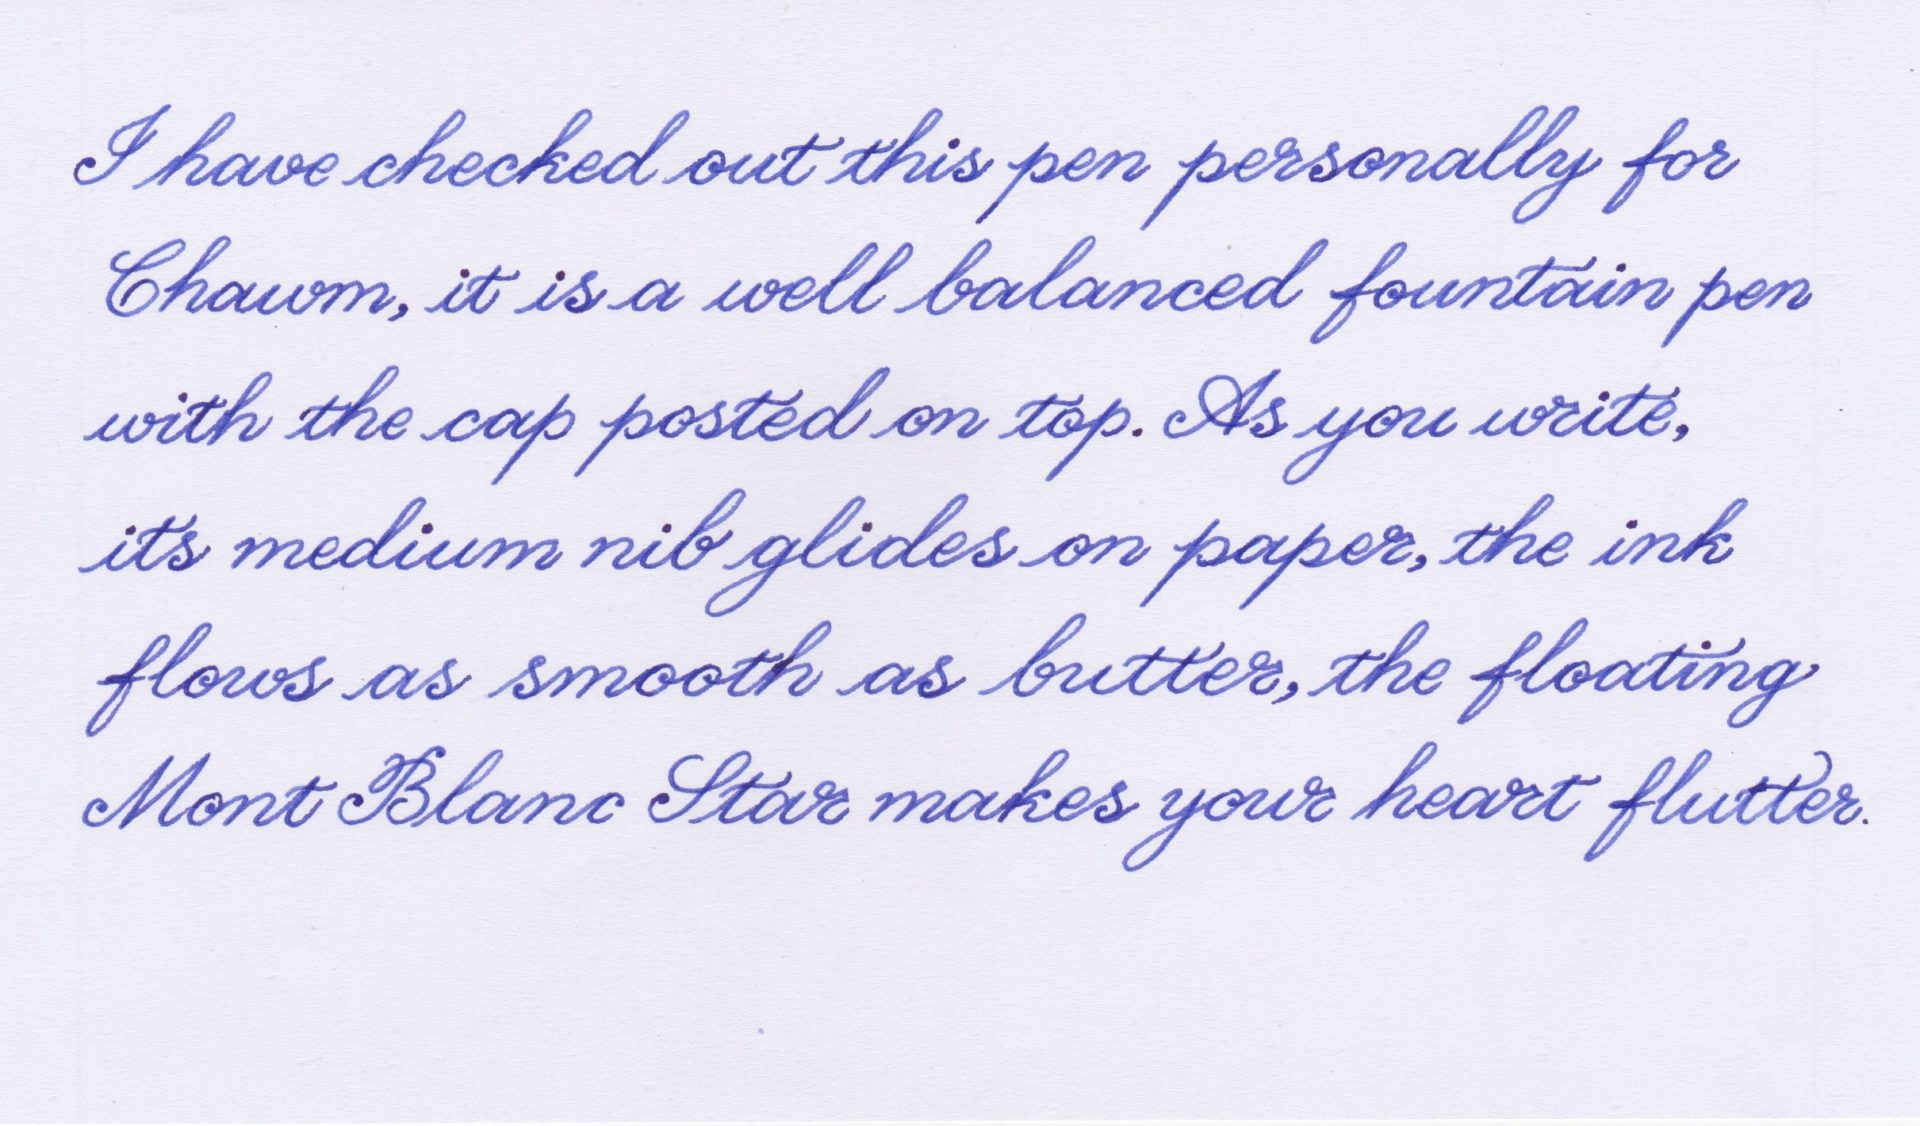 I have checked out this pen personally for
Chawm, it is a well balanced fountain pen
with the cap posted on top. As you write,
its medium nib glides on paper, the ink
flows as smooth as butter, the floating
Mont Blanc Star makes your heart flutter.